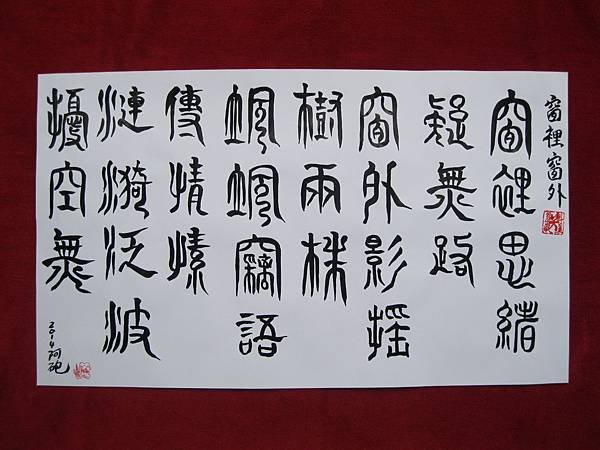 窗裡窗外
窗裡思緒
疑無路
窗外影搖
樹兩株
颯颯竊語
傳情愫
漣漪泛波
擾空無
2014阿砲